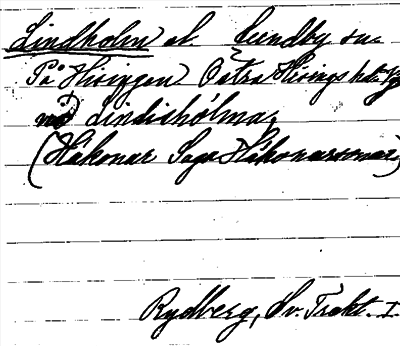 Lindholm al. Lundby sn.
På Hisingen. Östra Hisings hd. Vg
við Lindishólma,
(Hákonar Saga Hákonarsonar)
Rydberg, Sv. Trakt. I.